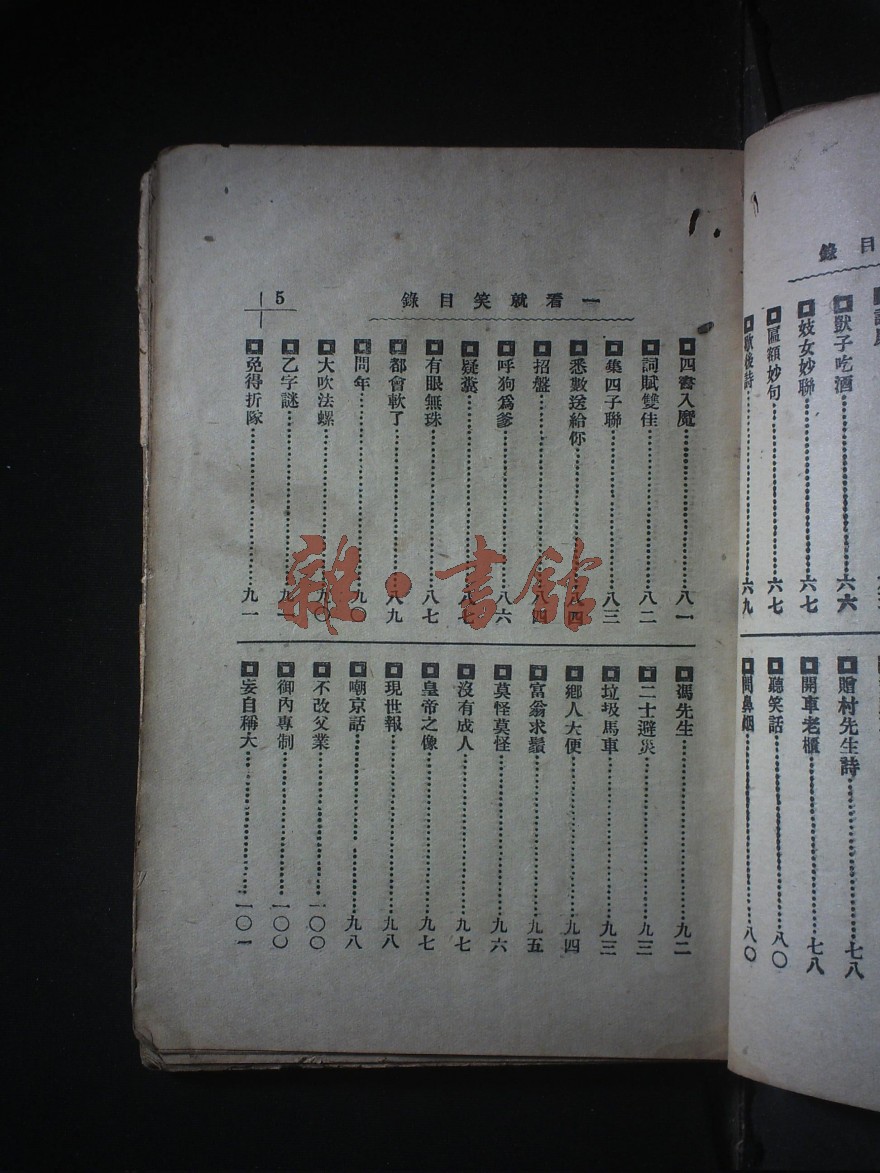 一看就笑目錄
5
四書入魔 八一
詞賦雙佳 八二
集四子聯 八三
悉數送給你 八四
招盤 八四
呼狗爲爹 八六
疑糞 八七
有眼無珠 八七
都會軟了 八九
問年 九〇
大吹法螺 九〇
乙字謎 九一
免得折隊 九一
馮先生 九二
二士避災 九三
垃圾馬車 九三
鄉人大便 九四
富翁求鬚 九五
莫怪莫怪 九六
沒有成人 九七
皇帝之像 九七
現世報 九八
嘲京話 九八
不改父業 一〇〇
御內專制 一〇〇
妄自稱大 一〇一
目錄
獃子吃酒 六六
妓女妙聯 六七
匾額妙句 六七
歇後詩 六九
贈村先生詩 七八
開車老櫃 七八
聽笑話 八〇
聞鼻烟 八〇
雜·書館